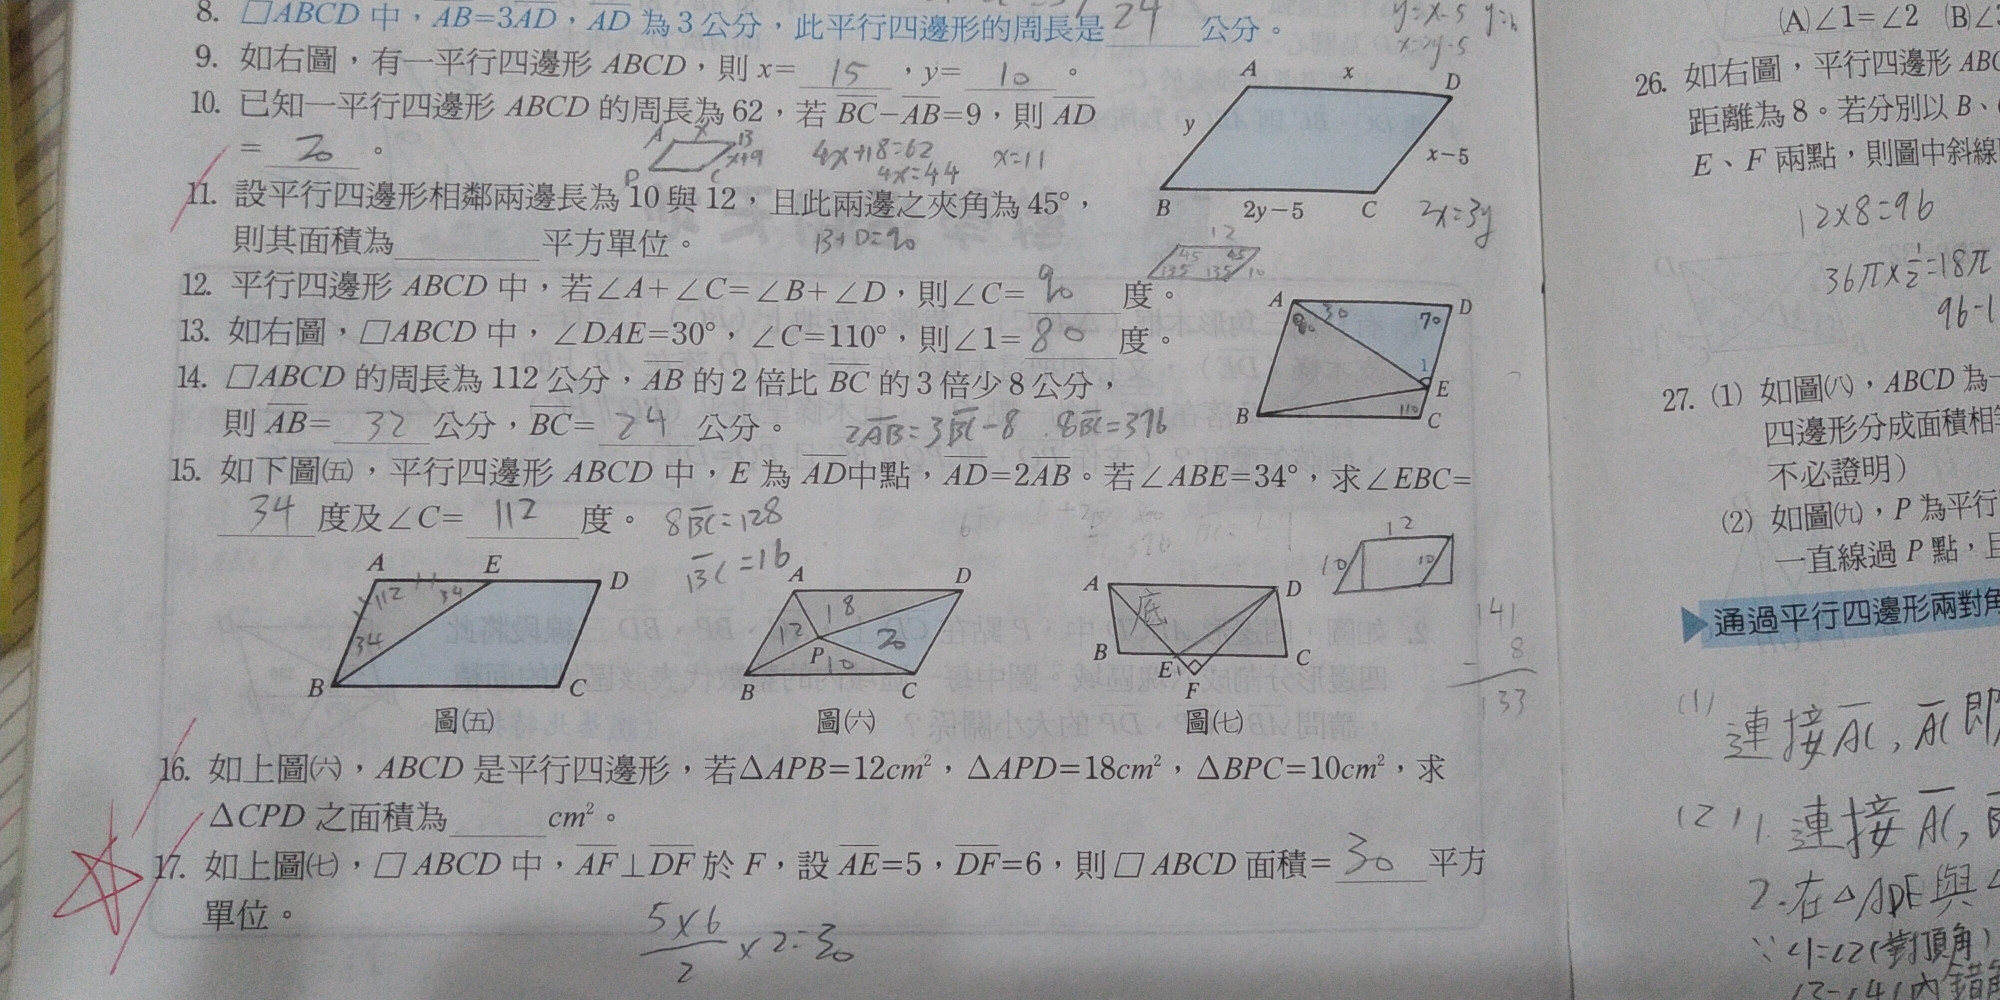 8. ▱ABCD 中，AB=3AD，AD 為 3 公分，此平行四邊形的周長是 24 公分。
y=x-5
x=2y-5
9. 如右圖，有一平行四邊形 ABCD，則 x= 15 ，y= 10 。
10. 已知一平行四邊形 ABCD 的周長為 62，若 BC－AB=9，則 AD
= 20 。
A x B
x+9
D C
4x+18=62
4x=44
x=11
A x D
y x－5
B 2y－5 C
2x=3y
11. 設平行四邊形相鄰兩邊長為 10 與 12，且此兩邊之夾角為 45°，
則其面積為 平方單位。
B+D=90
12
45 45
135 135 10
12. 平行四邊形 ABCD 中，若∠A+∠C=∠B+∠D，則∠C= 90 度。
13. 如右圖，▱ABCD 中，∠DAE=30°，∠C=110°，則∠1= 80 度。
A 30 70 D
80
1
E
B 110 C
14. ▱ABCD 的周長為 112 公分，AB 的 2 倍比 BC 的 3 倍少 8 公分，
則 AB= 32 公分，BC= 24 公分。
2AB=3BC-8
15. 如下圖(五)，平行四邊形 ABCD 中，E 為 AD中點，AD=2AB。若∠ABE=34°，求∠EBC=
34 度及∠C= 112 度。
8BC=128
BC=16
12
10 10
A E D
112 34
34
B C
圖(五)
A D
18
12 20
P 10
B C
圖(六)
A D
底
B E C
F
圖(七)
141
- 8
133
16. 如上圖(六)，ABCD 是平行四邊形，若△APB=12cm²，△APD=18cm²，△BPC=10cm²，求
△CPD 之面積為 cm²。
17. 如上圖(七)，▱ABCD 中，AF⊥DF 於 F，設 AE=5，DF=6，則▱ABCD 面積= 30 平方
單位。
5×6
2
×2=30
(A)∠1=∠2 (B)∠
26. 如右圖，平行四邊形 ABC
距離為 8。若分別以 B、
E、F 兩點，則圖中斜線
12×8=96
36π×½=18π
96-1
27. (1) 如圖(八)，ABCD 為
四邊形分成面積相
不必證明）
(2) 如圖(九)，P 為平行
一直線過 P 點，且
通過平行四邊形兩對角
(1)
連接AC, AC即
(2) 1. 連接AC,
2.在△ADE與
∵∠1=∠2(對頂角)